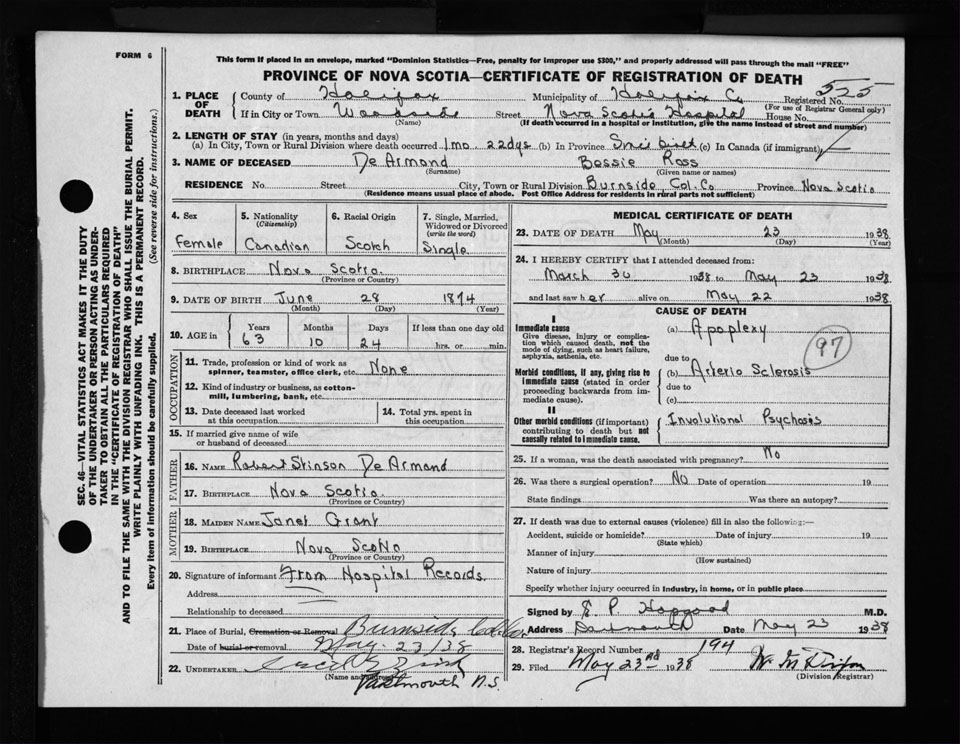 FORM 6
This form if placed in an envelope, marked "Dominion Statistics—Free, penalty for improper use $300," and properly addressed will pass through the mail "FREE"
PROVINCE OF NOVA SCOTIA—CERTIFICATE OF REGISTRATION OF DEATH
525
1. PLACE OF DEATH County of Halifax Municipality of Halifax Co Registered No.
(For use of Registrar General only)
If in City or Town Woodside Street Nova Scotia Hospital House No.
(Name) (If death occurred in a hospital or institution, give the name instead of street and number)
2. LENGTH OF STAY (in years, months and days)
(a) In City, Town or Rural Division where death occurred 1 mo 22 dys (b) In Province Since birth (c) In Canada (if immigrant)
3. NAME OF DECEASED De Armond Bessie Ross
(Surname) (Given name or names)
RESIDENCE No. Street City, Town or Rural Division Burnside, Col. Co Province Nova Scotia
(Residence means usual place of abode. Post Office Address for residents in rural parts not sufficient)
4. Sex Female
5. Nationality (Citizenship) Canadian
6. Racial Origin Scotch
7. Single, Married, Widowed or Divorced (write the word) Single
8. BIRTHPLACE Nova Scotia
(Province or Country)
9. DATE OF BIRTH June 28 1874
(Month) (Day) (Year)
10. AGE in Years 63 Months 10 Days 24 If less than one day old hrs. or min.
OCCUPATION
11. Trade, profession or kind of work as spinner, teamster, office clerk, etc. None
12. Kind of industry or business, as cotton-mill, lumbering, bank, etc.
13. Date deceased last worked at this occupation
14. Total yrs. spent in this occupation
15. If married give name of wife or husband of deceased
FATHER
16. NAME Robert Stinson De Armond
17. BIRTHPLACE Nova Scotia
(Province or Country)
MOTHER
18. MAIDEN NAME Janet Grant
19. BIRTHPLACE Nova Scotia
(Province or Country)
20. Signature of informant From Hospital Records
Address
Relationship to deceased
21. Place of Burial, Cremation or Removal Burnside, Col. Co.
Date of burial or removal May 23/38
22. UNDERTAKER
(Name and address) Dartmouth N.S.
MEDICAL CERTIFICATE OF DEATH
23. DATE OF DEATH May 23 1938
(Month) (Day) (Year)
24. I HEREBY CERTIFY that I attended deceased from:
March 30 1938 to May 23 1938
and last saw her alive on May 22 1938
CAUSE OF DEATH
I
Immediate cause
Give disease, injury or complication which caused death, not the mode of dying, such as heart failure, asphyxia, asthenia, etc.
(a) Apoplexy
97
due to
Morbid conditions, if any, giving rise to immediate cause (stated in order proceeding backwards from immediate cause).
(b) Arterio Sclerosis
due to
(c)
II
Other morbid conditions (if important) contributing to death but not causally related to immediate cause.
Involutional Psychosis
25. If a woman, was the death associated with pregnancy? No
26. Was there a surgical operation? NO Date of operation 19
State findings Was there an autopsy?
27. If death was due to external causes (violence) fill in also the following:—
Accident, suicide or homicide? Date of injury 19
(State which)
Manner of injury
(How sustained)
Nature of injury
Specify whether injury occurred in Industry, in home, or in public place
Signed by E P. Hopgood M.D.
Address Dartmouth Date May 23 1938
28. Registrar's Record Number 194
29. Filed May 23rd 1938
(Division Registrar)
SEC. 46—VITAL STATISTICS ACT MAKES IT THE DUTY
OF THE UNDERTAKER OR PERSON ACTING AS UNDER-
TAKER TO OBTAIN ALL THE PARTICULARS REQUIRED
IN THE "CERTIFICATE OF REGISTRATION OF DEATH"
AND TO FILE THE SAME WITH THE DIVISION REGISTRAR WHO SHALL ISSUE THE BURIAL PERMIT.
WRITE PLAINLY WITH UNFADING INK. THIS IS A PERMANENT RECORD.
Every item of information should be carefully supplied. (See reverse side for instructions.)